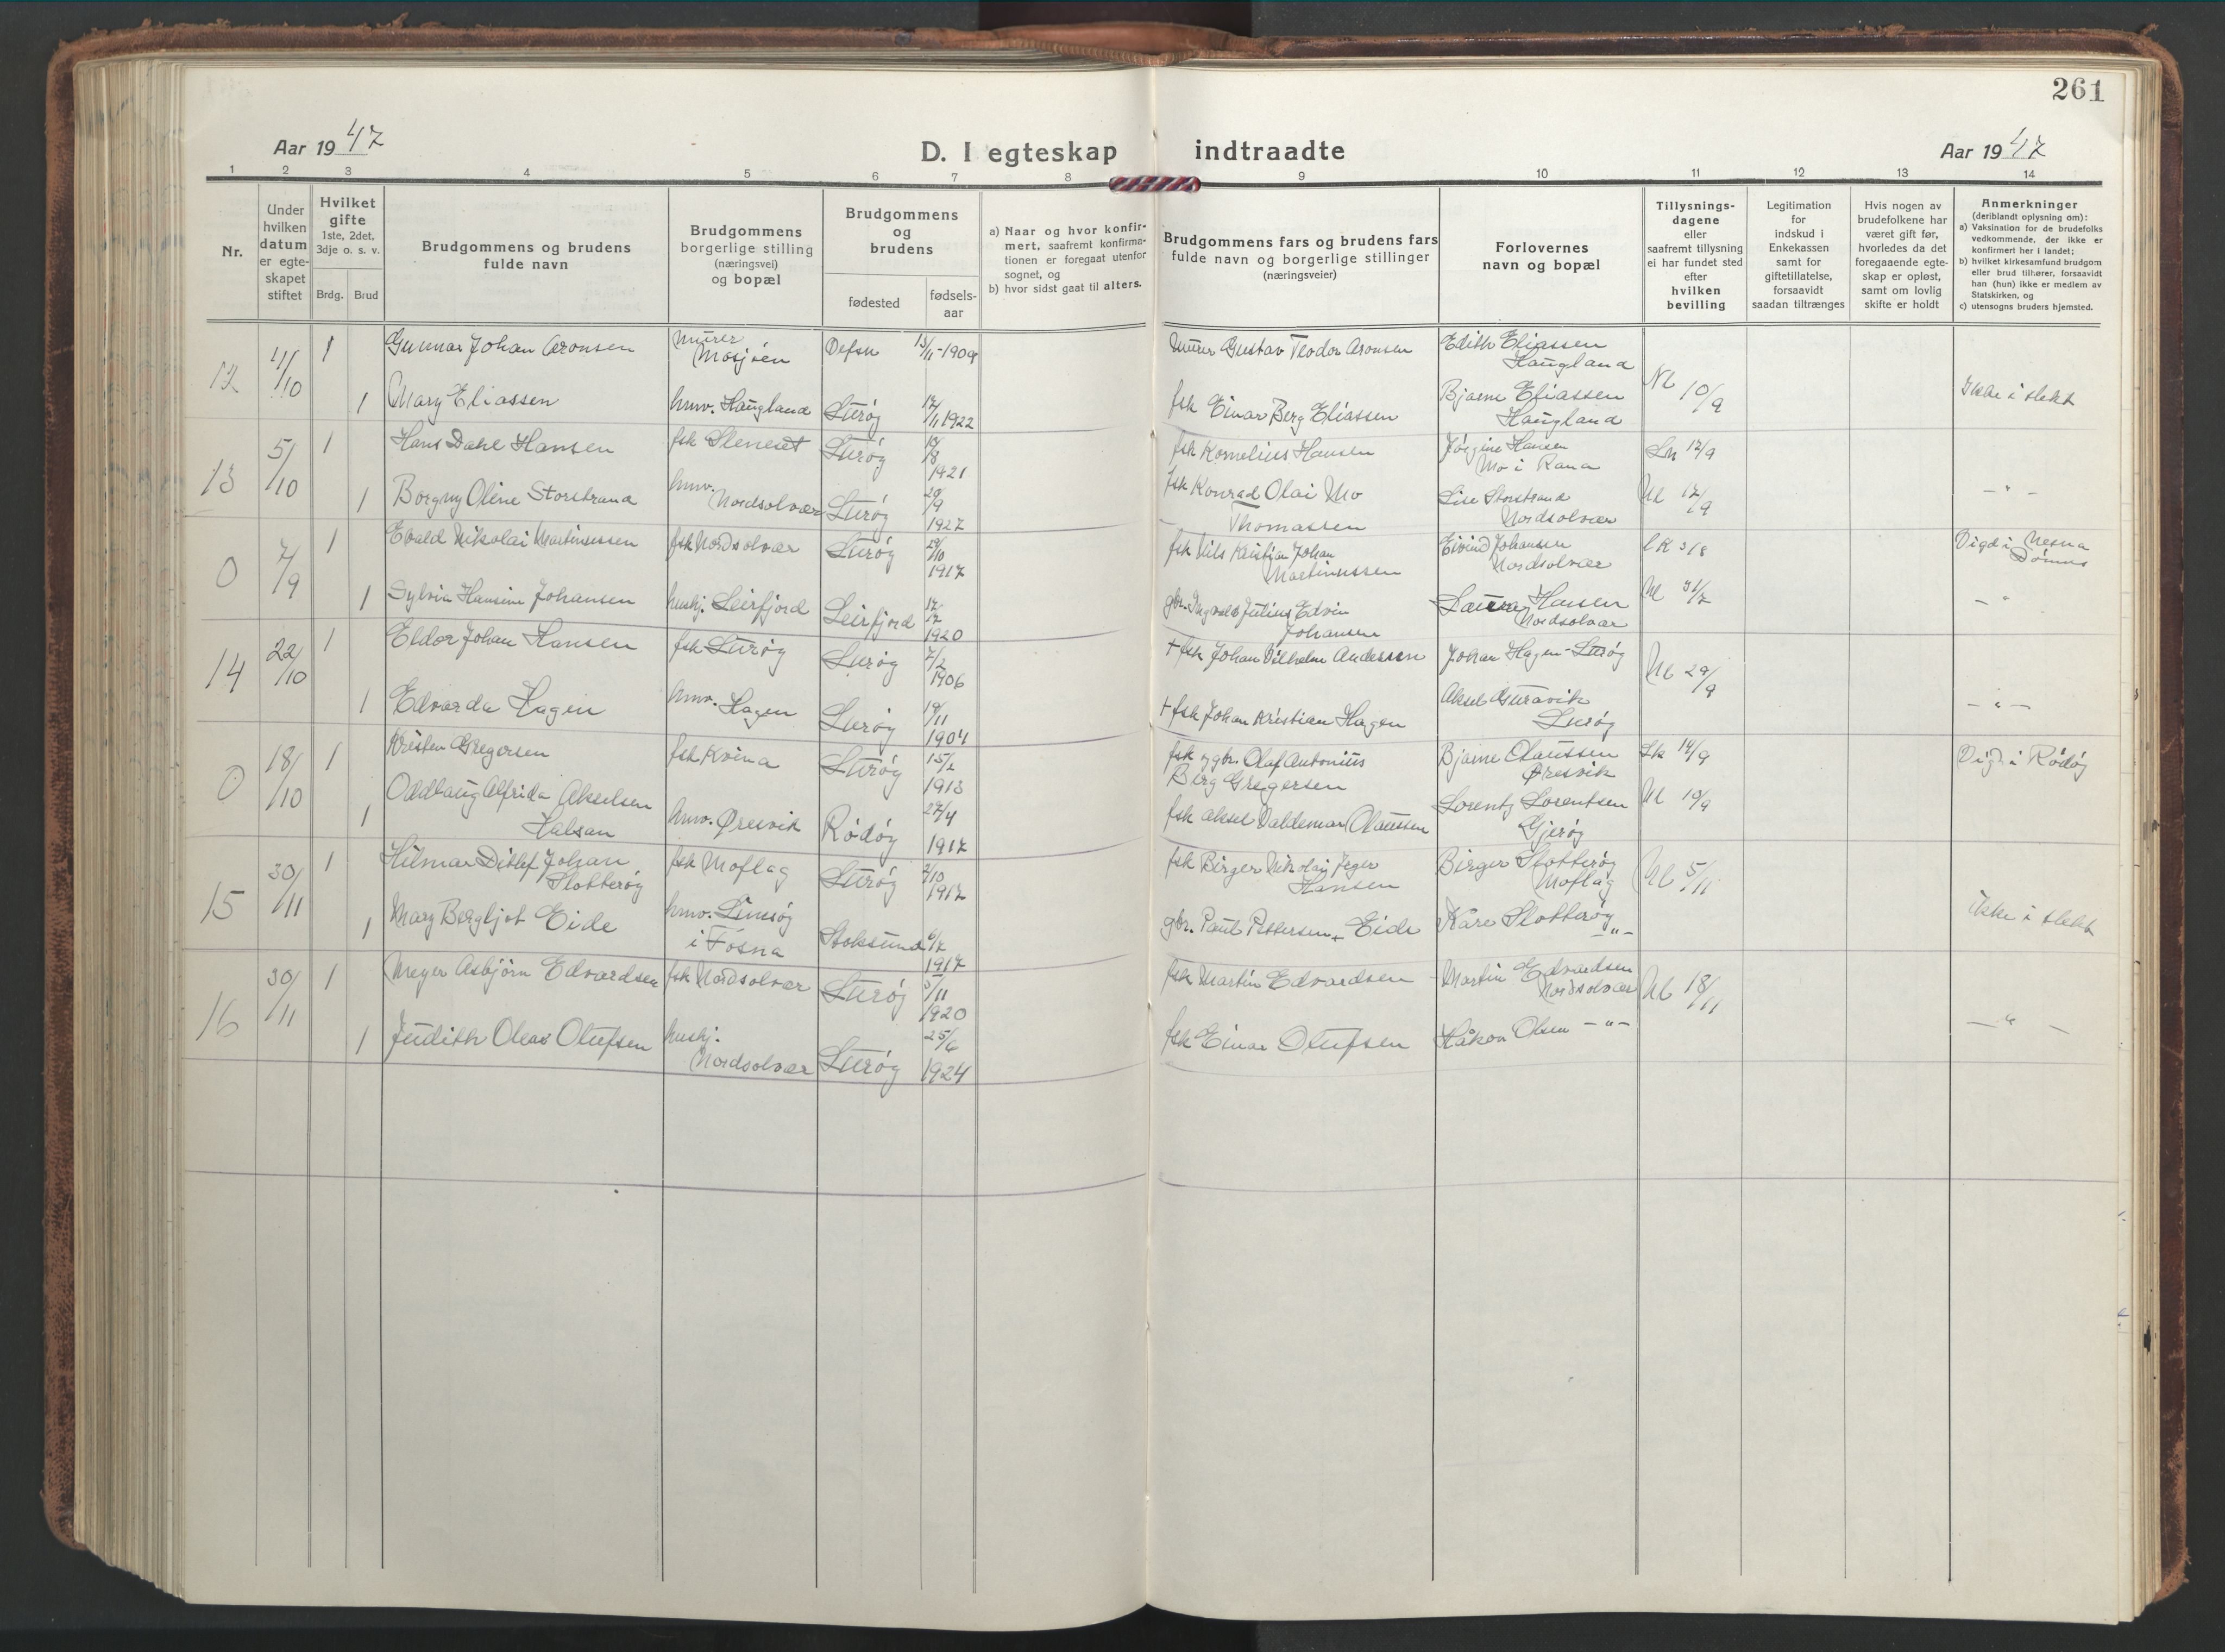 261
Aar 1947
D. I egteskap indtraadte
Aar 1947
1 2 3 4 5 6 7 8 9 10 11 12 13 14
Nr.
Under
hvilken
datum
er egte-
skapet
stiftet
Hvilket
gifte
1ste, 2det,
3dje o. s. v.
Brdg. Brud
Brudgommens og brudens
fulde navn
Brudgommens
borgerlige stilling
(næringsvei)
og bopæl
Brudgommens
og
brudens
fødested
fødsels-
aar
a) Naar og hvor konfir-
mert, saafremt konfirma-
tionen er foregaat utenfor
sognet, og
b) hvor sidst gaat til alters.
Brudgommens fars og brudens fars
fulde navn og borgerlige stillinger
(næringsveier)
Forlovernes
navn og bopæl
Tillysnings-
dagene
eller
saafremt tillysning
ei har fundet sted
efter
hvilken
bevilling
Legitimation
for
indskud i
Enkekassen
samt for
giftetillatelse,
forsaavidt
saadan tiltrænges
Hvis nogen av
brudefolkene har
været gift før,
hvorledes da det
foregaaende egte-
skap er opløst,
samt om lovlig
skifte er holdt
Anmerkninger
(deriblandt oplysning om):
a) Vaksination for de brudefolks
vedkommende, der ikke er
konfirmert her i landet;
b) hvilket kirkesamfund brudgom
eller brud tilhører, forsaavidt
han (hun) ikke er medlem av
Statskirken, og
c) utensogns bruders hjemsted.
12
4/10
1
Gunnar Johan Aronsen
murer
Mosjøen
Defsn
13/11-1909
murer Gustav Teodor Aronsen
Edith Eliassen
Haugland
Nl 10/9
1
Mary Eliassen
hmv. Haugland
Lurøy
17/11 1922
fsk Einar Berg Eliassen
Bjarne Eliassen
Haugland
Ikke i slekt
13
5/10
1
Hans Dahl Hansen
fsk Sleneset
Lurøy
17/8
1921
fsk Kornelius Hansen
Jørgine Hansen
Mo i Rana
Ln 12/9
1
Borgny Oline Storstrand
hmv.
Nordsolvær
Lurøy
29/9
1927
fsk Konrad Olai Mo
Thomassen
Lise Storstrand
Nordsolvær
Nl 17/9
- " -
0
7/9
1
Evald Nikolai Martinussen
fsk Nordsolvær
Lurøy
29/10
1917
fsk Nils Kristian Johan
Martinussen
Eivind Johansen
Nordsolvær
LK 3/8
Vigd i Nesna
Dønnes
1
Sylvia Hansine Johansen
hushj. Leirfjord
Leirfjord
17/12
1920
gbr. Ingvald Julius Edvin
Johansen
Laura Hansen
Nordsolvær
Nl 31/7
- "
14
22/10
1
Eldor Johan Hansen
fsk Lurøy
Lurøy
7/2
1906
+ fsk Johan Vilhelm Andersen
Johan Hagen - Lurøy
Nl 29/9
1
Edvarda Hagen
hmv. Hagen
Lurøy
19/11
1904
+ fsk Johan Kristian Hagen
Aksel
Lurøy
- " -
0
18/10
1
Kristen Gregersen
fsk Kvina
Lurøy
15/2
1913
fsk og gbr. Olaf Antonius
Berg Gregersen
Bjarne Olaussen
Øresvik
Lk 14/9
Vigd i Rødøy
1
Oddlaug Alfrida Akselsen
Halsan
hmv. Øresvik
Rødøy
27/4
1917
fsk Aksel Valdemar Olaussen
Lorentz Lorentsen
Gjerøy
Nl 19/9
15
30/11
1
Hilmar Ditlef Johan
Slotterøy
fsk Moflag
Lurøy
2/10
1917
fsk Birger Nikolai Jeger
Hansen
Birger Slotterøy
Moflag
Nl 5/11
1
Mary Bergljot Eide
hmv. Linesøy
i Fosna
Stoksund
6/12
1917
gbr. Paul Pettersen + Eide
Kåre Slotterøy
- " -
ikke i slekt
16
30/11
1
Meyer Asbjørn Edvardsen
fsk Nordsolvær
Lurøy
3/11
1920
fsk Martin Edvardsen
Martin Edvardsen
Nordsolvær
Nl 18/11
1
Judith Olea Olufsen
hushj.
Nordsolvær
Lurøy
25/6
1924
fsk Einar Olufsen
Håkon Olsen - " -
- " -